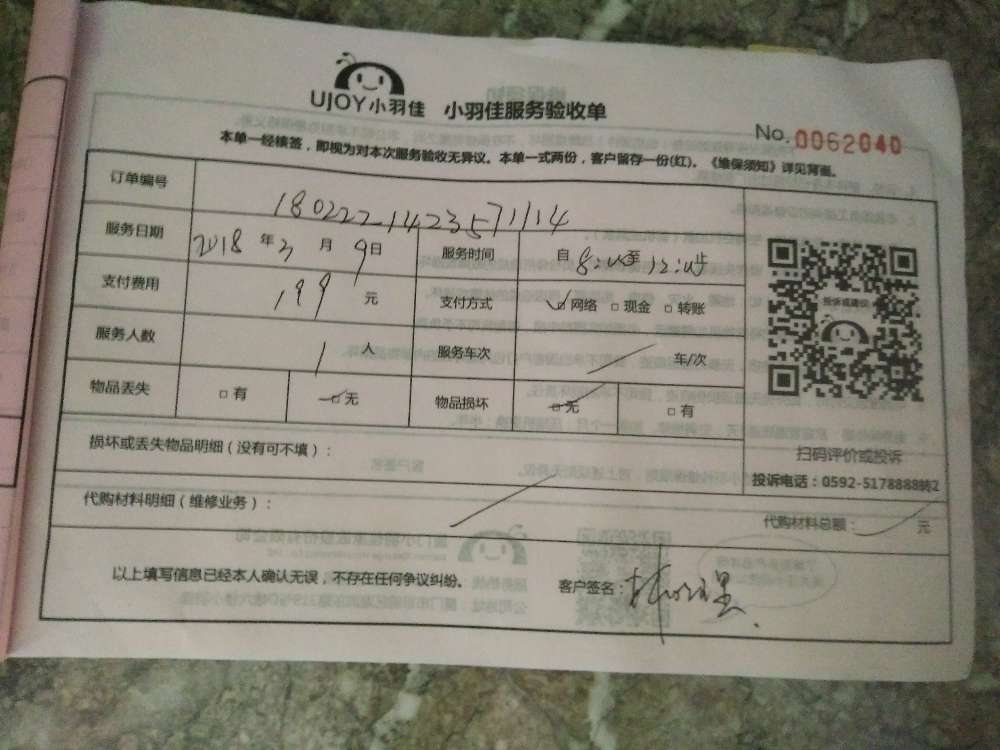 UJOY小羽佳 小羽佳服务验收单
No. 0062040
本单一经核签，即视为对本次服务验收无异议。本单一式两份，客户留存一份(红)。《维保须知》详见背面。
订单编号 180222-1423571114
服务日期 2018年3月9日 服务时间 自8:00至12:00止
支付费用 199元 支付方式 ☑网络 □现金 □转账
服务人数 1人 服务车次 / 车/次
物品丢失 □有 ☑无 物品损坏 ☑无 □有
投诉或建议
扫码评价或投诉
投诉电话：0592-5178888转2
损坏或丢失物品明细（没有可不填）：
代购材料明细（维修业务）：
代购材料总额： 元
以上填写信息已经本人确认无误，不存在任何争议纠纷。 客户签名：